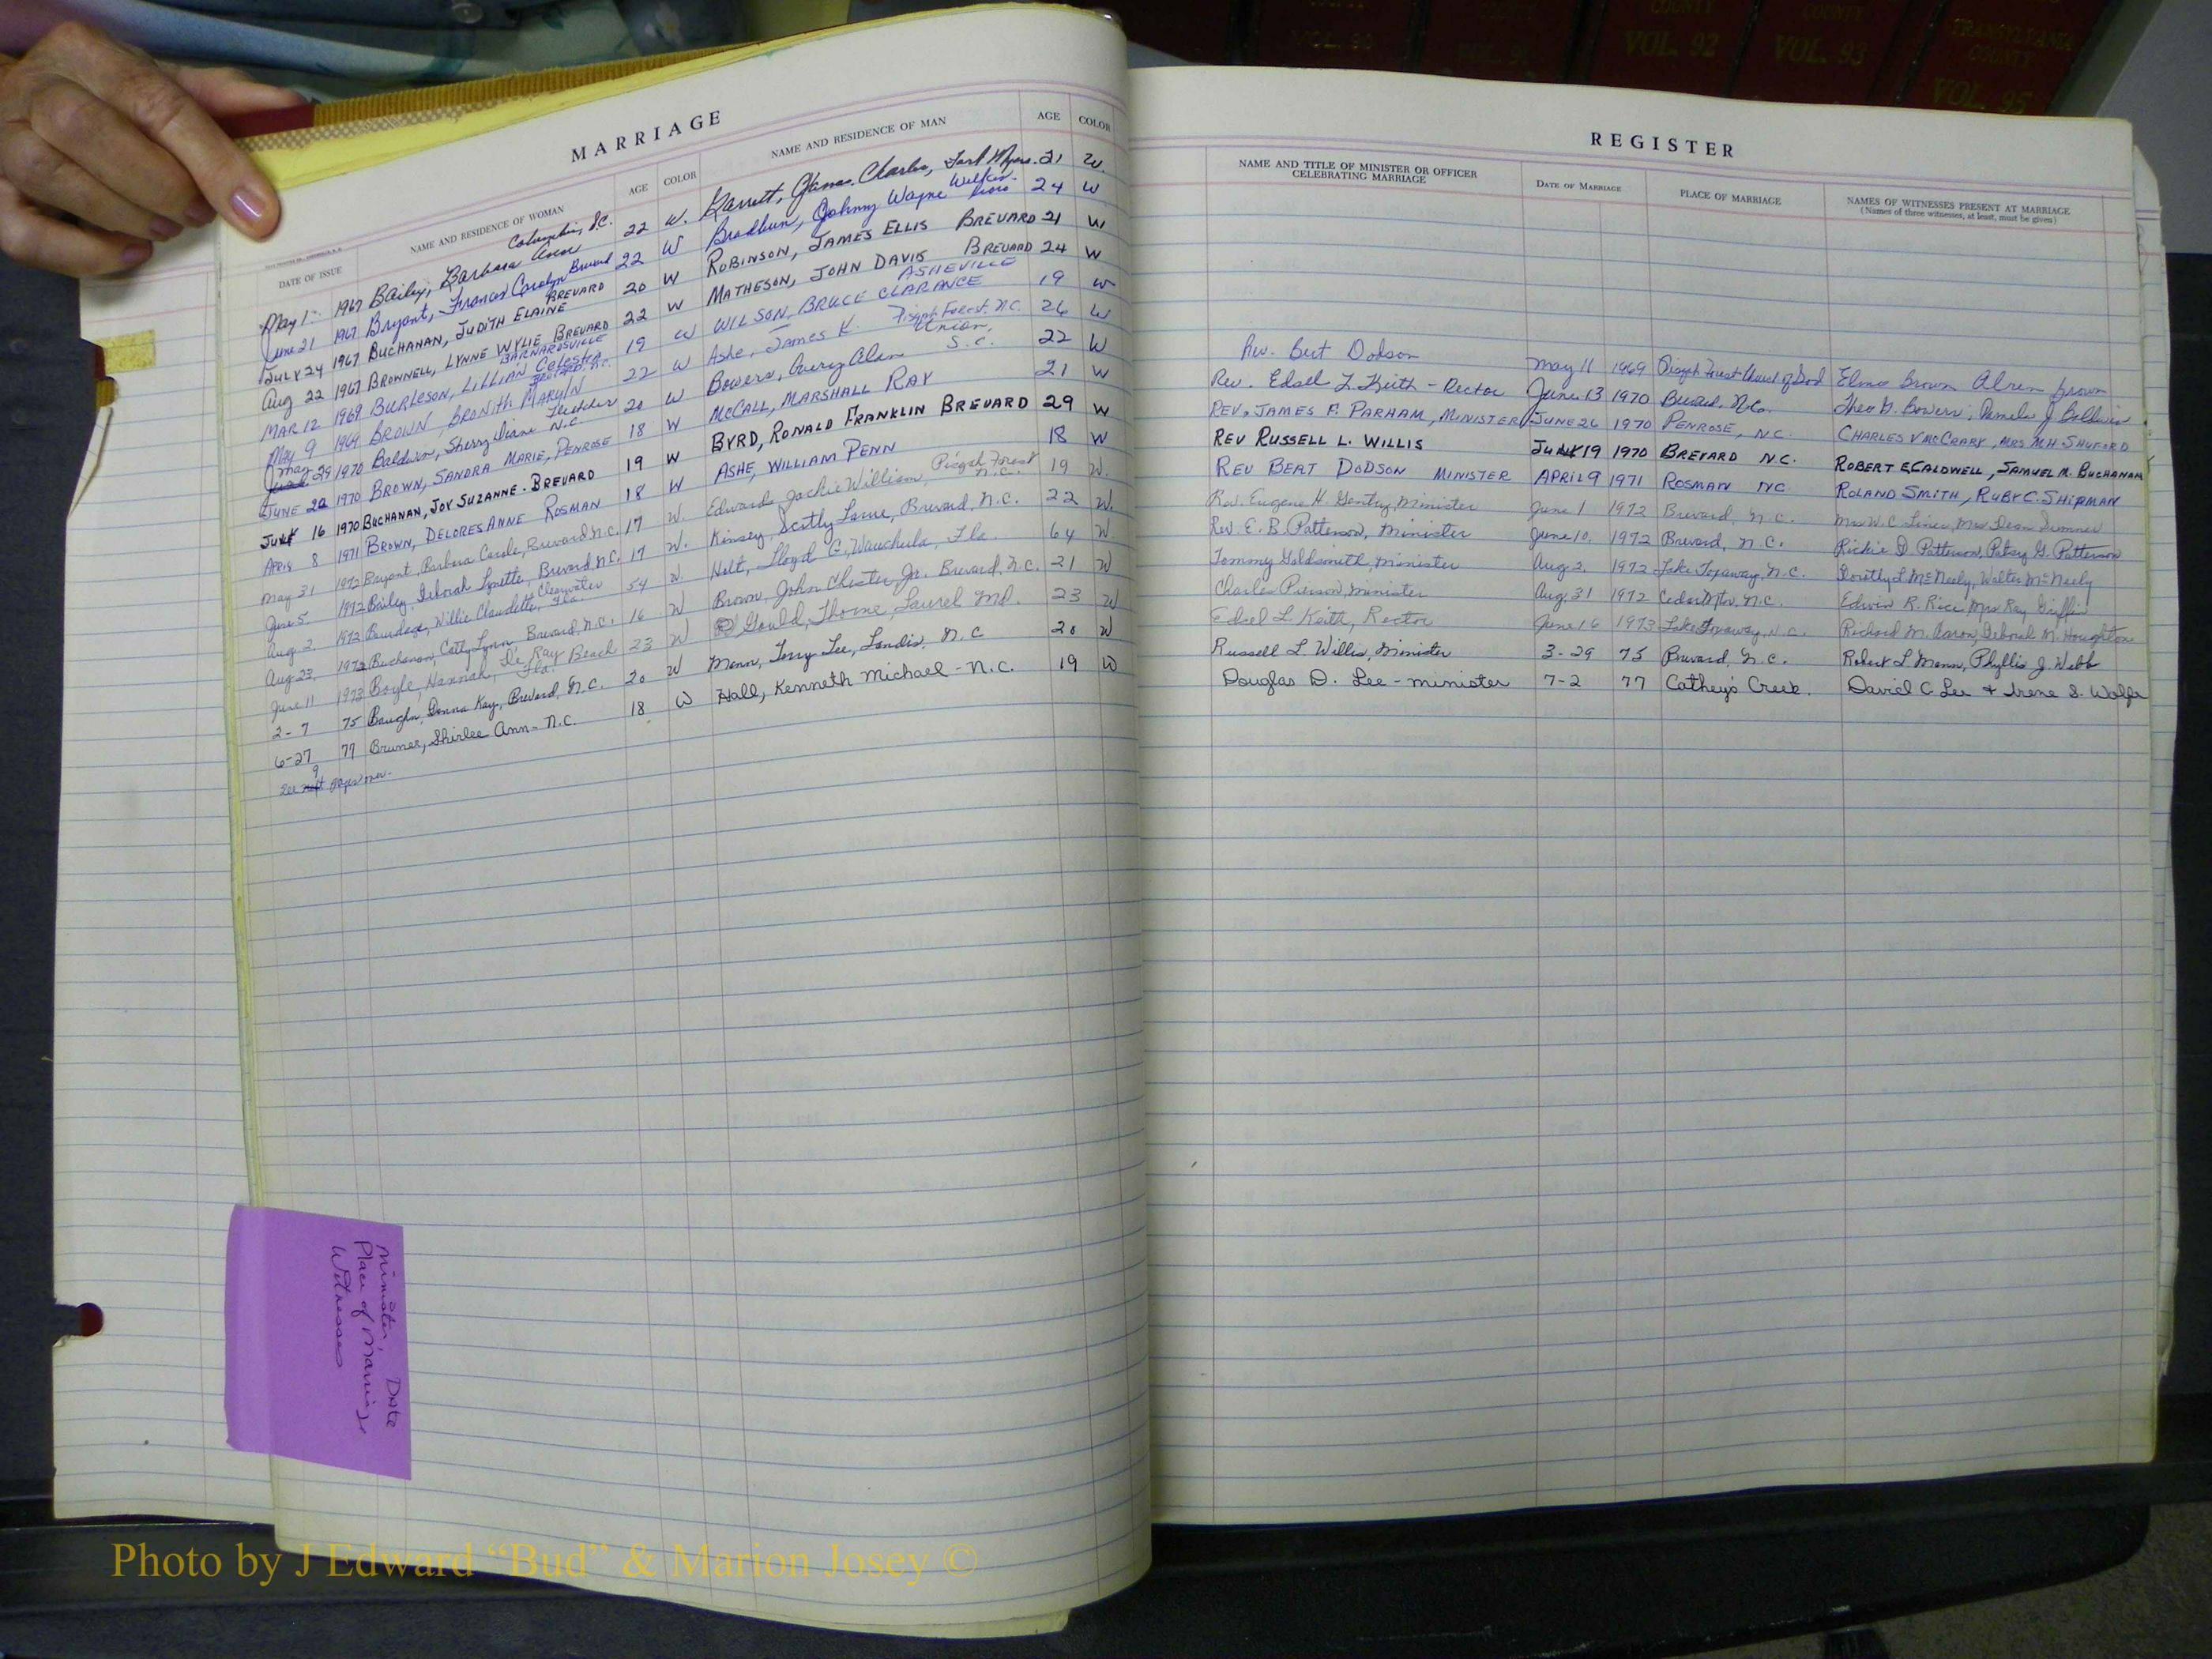 COUNTY
VOL. 92
COUNTY
VOL. 93
TRANSYLVANIA
COUNTY
VOL. 95
MARRIAGE
DATE OF ISSUE NAME AND RESIDENCE OF WOMAN AGE COLOR NAME AND RESIDENCE OF MAN AGE COLOR
May 1 1967 Bailey, Barbara Ann Columbia, S.C. 22 W. Garrett, James Charles, Fort Myers 21 W.
June 21 1967 Bryant, Frances Carolyn Brevard 22 W Bradburn, Johnny Wayne 24 W
JULY 24 1967 BUCHANAN, JUDITH ELAINE BREVARD 20 W ROBINSON, JAMES ELLIS BREVARD 21 W
Aug 22 1967 BROWNELL, LYNNE WYLIE BREVARD 22 W MATHESON, JOHN DAVIS BREVARD 24 W
MAR 12 1969 BURLESON, LILLIAN Celesta BARNARDSVILLE 19 W WILSON, BRUCE CLARANCE ASHEVILLE 19 W
May 9 1969 BROWN, BRONITH MARYLN 22 W Ashe, James K. Pisgah Forest N.C. 26 W
May 29 1970 Baldwin, Sherry Diane Fletcher N.C. 20 W Bowers, Avery Alan Union, S.C. 22 W
JUNE 22 1970 BROWN, SANDRA MARIE, PENROSE 18 W McCALL, MARSHALL RAY 21 W
JULY 16 1970 BUCHANAN, JOY SUZANNE - BREVARD 19 W BYRD, RONALD FRANKLIN BREVARD 29 W
APRIL 8 1971 BROWN, DELORES ANNE ROSMAN 18 W ASHE, WILLIAM PENN 18 W
May 31 1972 Bryant, Barbara Carole, Brevard N.C. 17 W. Edwards Jackie William, Pisgah Forest N.C. 19 W.
June 5 1972 Bailey, Deborah Lynette, Brevard N.C. 17 W. Kinsey, Scotty Lorne, Brevard, N.C. 22 W.
Aug 2 1972 Willie Claudette, Clearwater Fla. 54 W Holt, Lloyd G., Wauchula, Fla. 64 W
Aug 23 1972 Buchanan, Cathy Lynn, Brevard, N.C. 16 W Brown, John Chester, Jr. Brevard, N.C. 21 W
June 11 1973 Boyle, Hannah, De Ray Beach Fla. 23 W Gould, Thorne, Laurel Md. 23 W
2-7 75 Baughn, Donna Kay, Brevard, N.C. 20 W Mann, Terry Lee, Landis, N.C 20 W
6-27 77 Bruner, Shirlee Ann - N.C. 18 W Hall, Kenneth Michael - N.C. 19 W
See next 9 pages over.
REGISTER
NAME AND TITLE OF MINISTER OR OFFICER CELEBRATING MARRIAGE DATE OF MARRIAGE PLACE OF MARRIAGE NAMES OF WITNESSES PRESENT AT MARRIAGE
(Names of three witnesses, at least, must be given)
Rev. Bert Dodson May 11 1969 Pisgah Forest Church of God Elmo Brown Alren Brown
Rev. Edsel L. Keith - Rector June 13 1970 Brevard, N.C. Theo G. Bowers, Pamela J. Baldwin
REV. JAMES F. PARHAM, MINISTER JUNE 26 1970 PENROSE, N.C. CHARLES V McCRARY, MRS M.H. SHUFORD
REV RUSSELL L. WILLIS JULY 19 1970 BREVARD N.C. ROBERT E CALDWELL, SAMUEL M. BUCHANAN
REV BERT DODSON MINISTER APRIL 9 1971 ROSMAN NC. ROLAND SMITH, RUBY C. SHIPMAN
Rev. Eugene H. Gentry, Minister June 1 1972 Brevard, N.C. Mrs W.C. Liner, Mrs Dean Sumner
Rev. E. B. Patterson, Minister June 10, 1972 Brevard, N.C. Rickie D. Patterson, Patsy G. Patterson
Tommy Goldsmith, Minister Aug 2, 1972 Lake Toxaway, N.C. Dorothy L McNeely, Walter McNeely
Charles Pierson, Minister Aug. 31 1972 Cedar Mtn, N.C. Edwin R. Rice, Mrs Ray Griffin
Edsel L. Keith, Rector June 16 1973 Lake Toxaway, N.C. Richard M. Aaron, Deborah M. Houghton
Russell L Willis, Minister 3-29 75 Brevard, N.C. Robert L Mann, Phyllis J. Webb
Douglas D. Lee - minister 7-2 77 Cathey's Creek. David C. Lee & Irene S. Wolfe
Minister, Date
Place of Marriage
Witnesses
Photo by J Edward “Bud” & Marion Josey ©